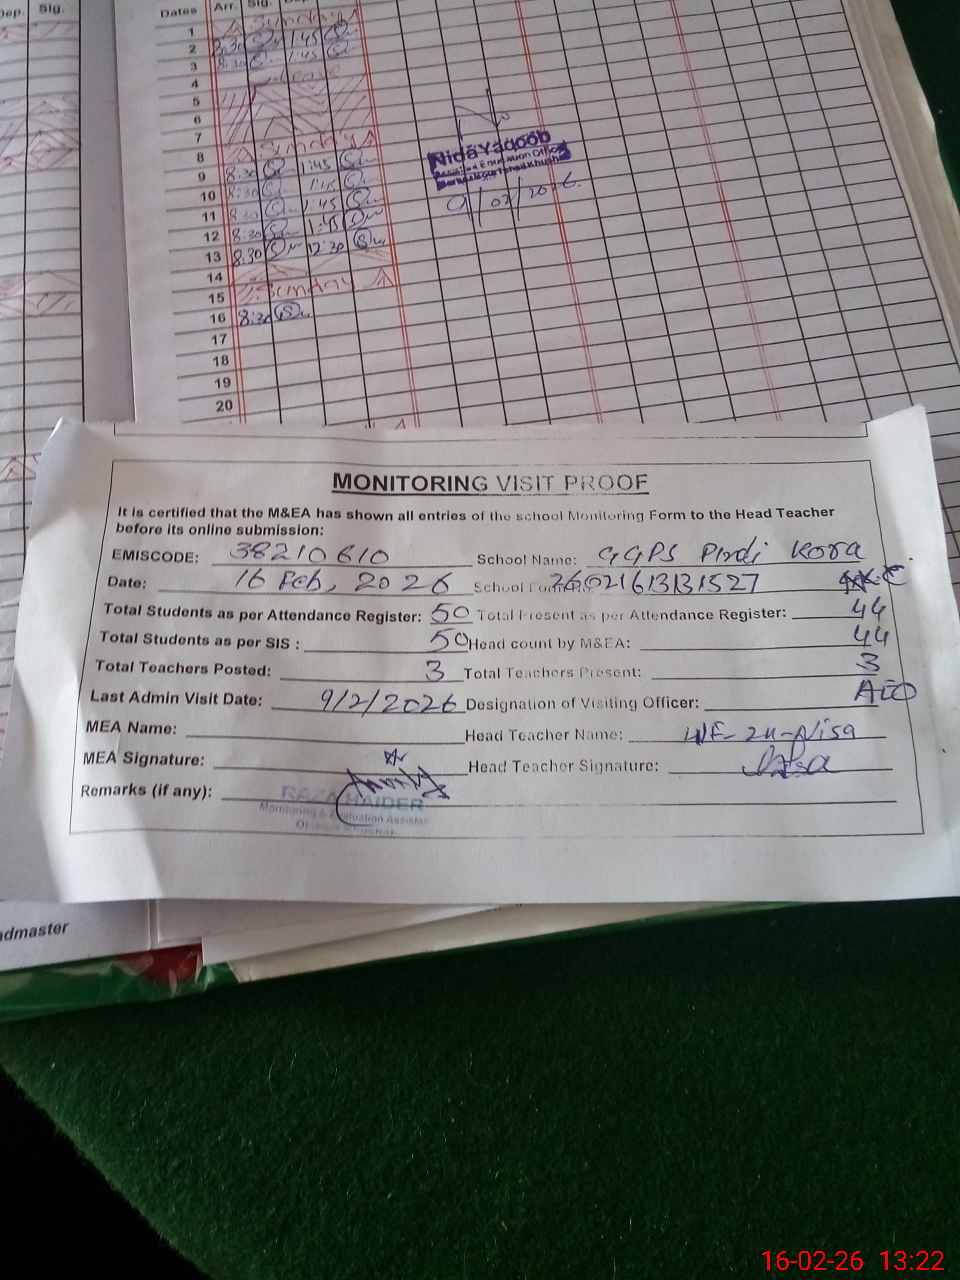 Dep. Sig.
Dates Arr. Sig.
1 Sunday
2 8:30 1:45
3 8:30 1:45
4 Leave
5
6
7
8 Sunday
9 8:30 1:45
10 8:30 1:45
11 8:30 1:45
12 8:30 1:45
13 8:30 12:30
14
15 Sunday
16 8:30
17
18
19
20
Nida Yaqoob
Assistant Education Officer
9/02/2026
MONITORING VISIT PROOF
It is certified that the M&EA has shown all entries of the school Monitoring Form to the Head Teacher
before its online submission:
EMISCODE: 38210610 School Name: GGPS Pindi Kora
Date: 16 Feb, 2026 School
Total Students as per Attendance Register: 50 Total Present as per Attendance Register: 44
Total Students as per SIS : 50 Head count by M&EA: 44
Total Teachers Posted: 3 Total Teachers Present: 3
Last Admin Visit Date: 9/2/2026 Designation of Visiting Officer: AEO
MEA Name: Head Teacher Name:
MEA Signature: Head Teacher Signature:
Remarks (if any):
RAZA HAIDER
Monitoring & Evaluation Assistant
admaster
16-02-26 13:22